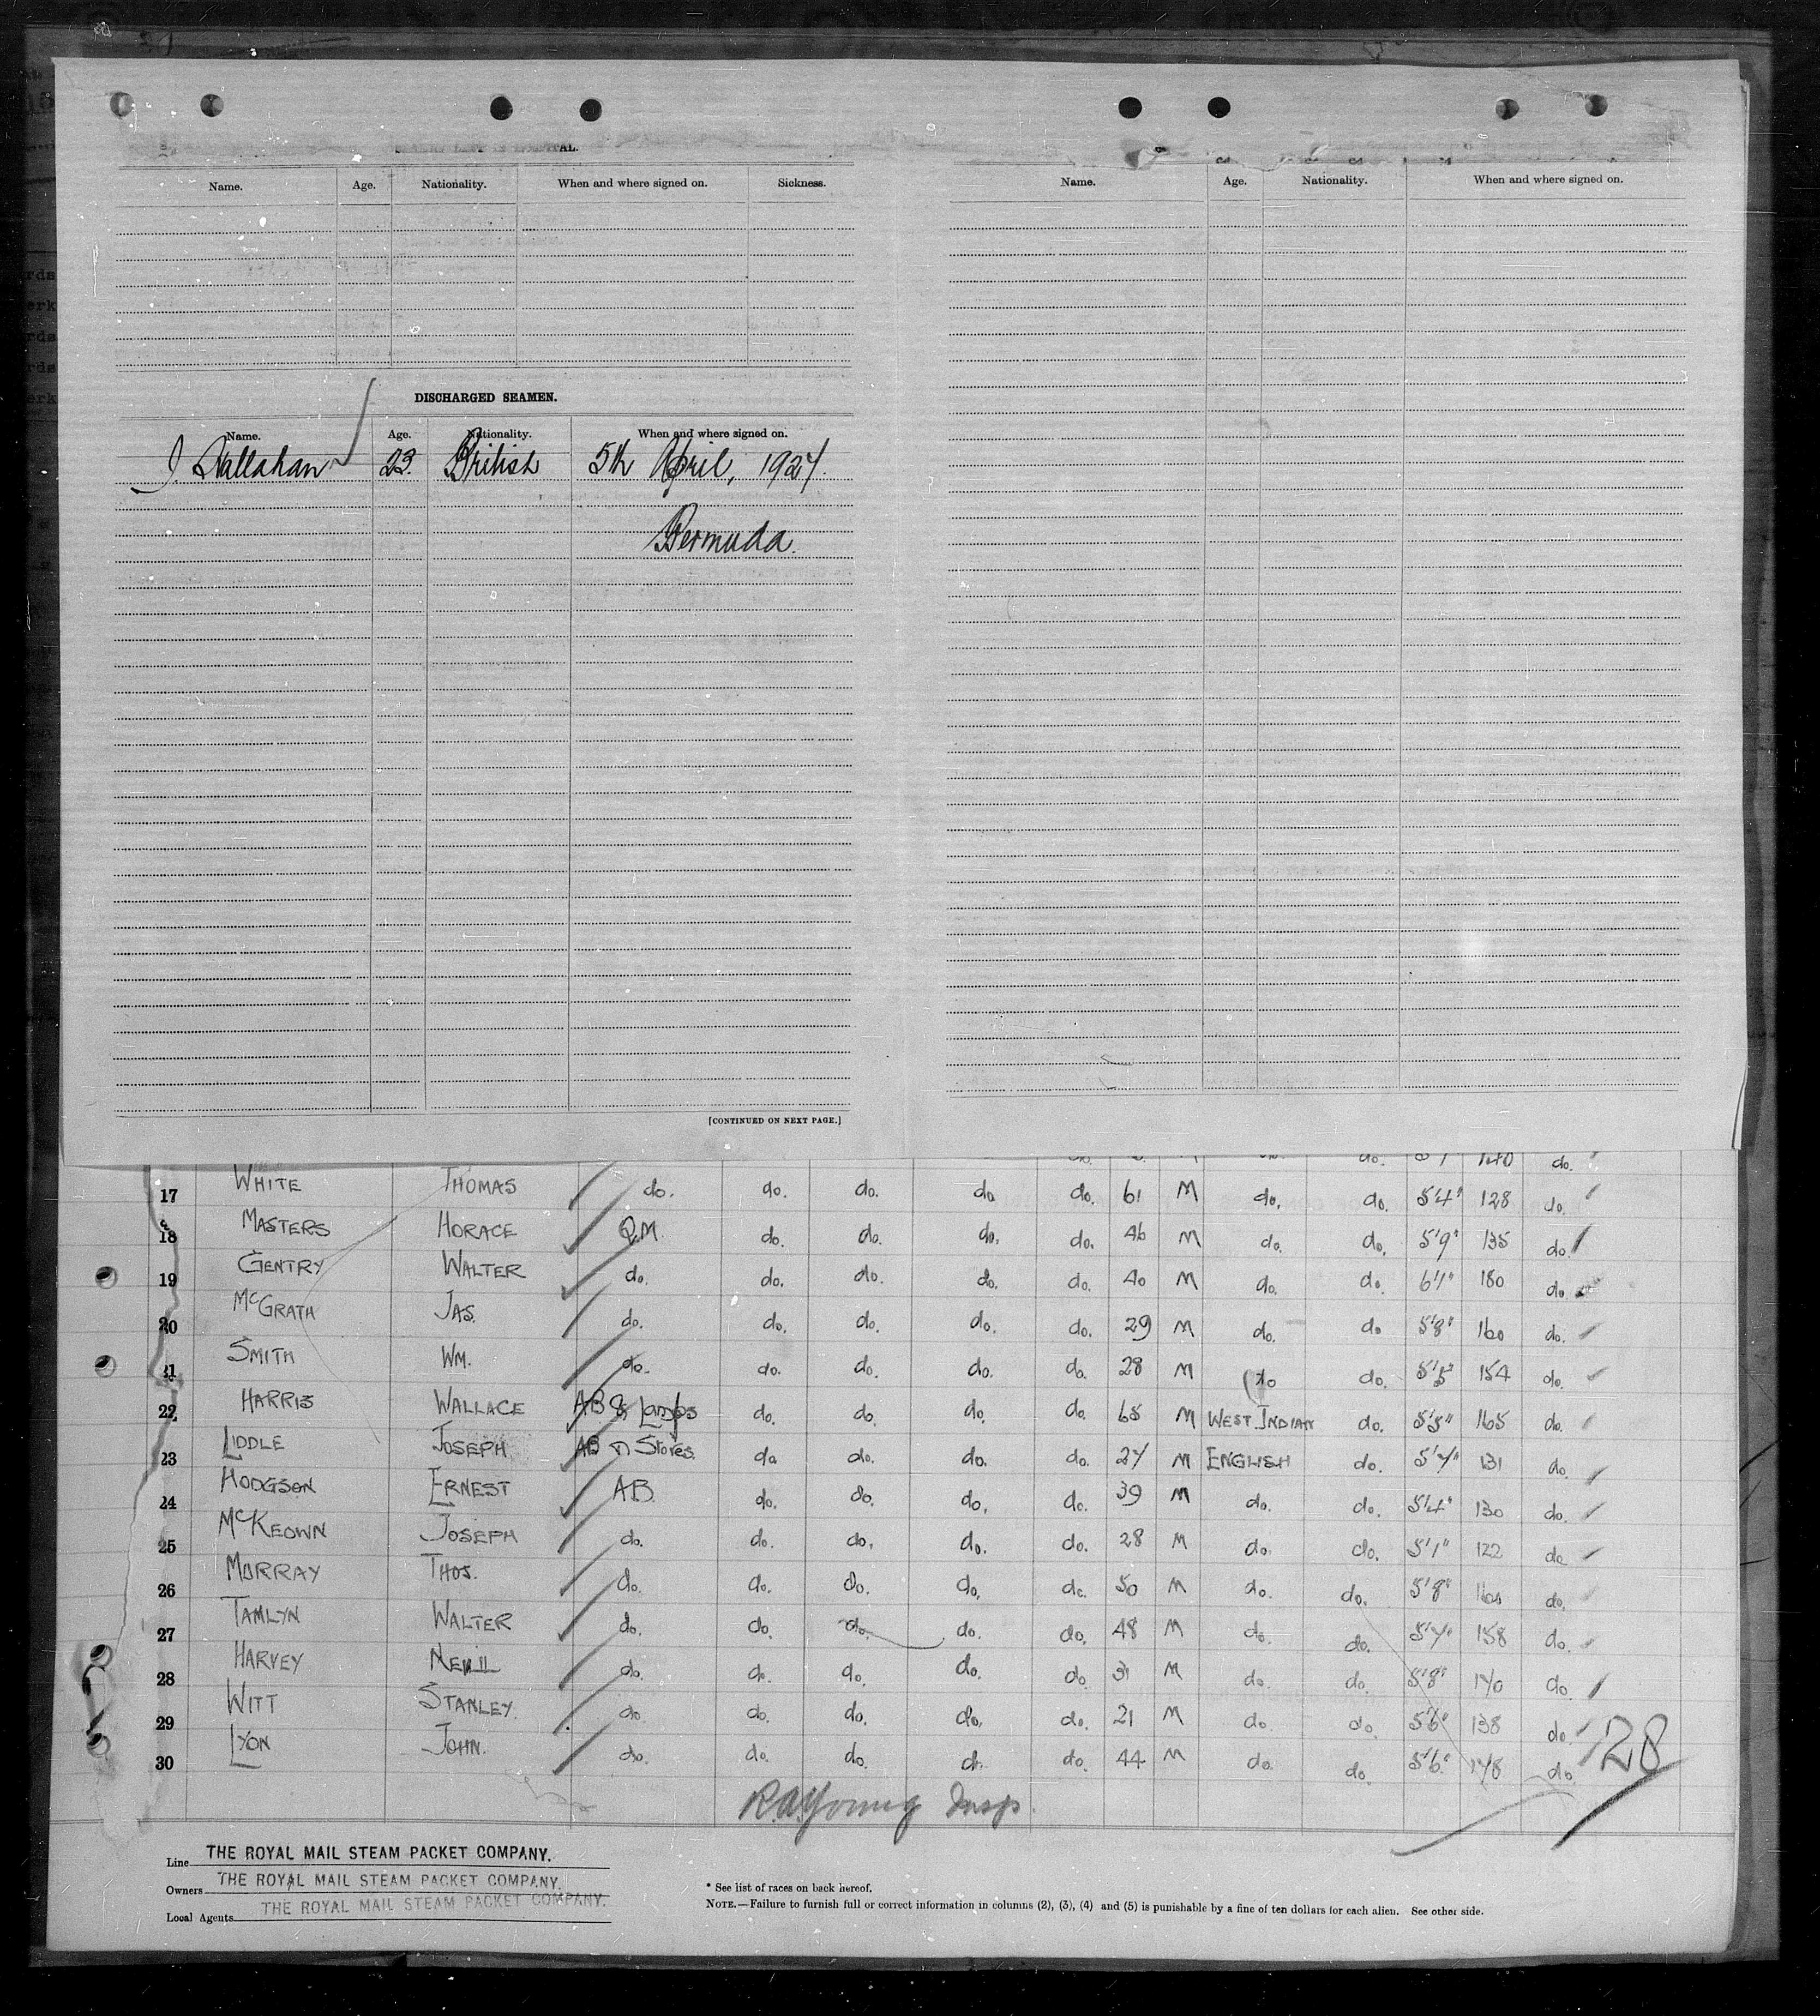 Name. Age. Nationality. When and where signed on. Sickness.
Name. Age. Nationality. When and where signed on.
DISCHARGED SEAMEN.
Name. Age. Nationality. When and where signed on.
J. Callahan 23. British 5th April, 1927.
Bermuda.
[CONTINUED ON NEXT PAGE.]
do. 140 do.
17 WHITE THOMAS do. do. do. do do. 61 M do. do. 5'4" 128 do.
18 MASTERS HORACE Q.M. do. do. do. do. 46 M do. do. 5'9" 135 do.
19 GENTRY WALTER do. do. do. do. do. 40 M do. do. 6'1" 180 do.
20 McGRATH JAS. do. do. do. do. do. 29 M do. do 5'8" 160 do.
21 SMITH WM. do. do. do. do. do. 28 M do do. 5'5" 154 do.
22 HARRIS WALLACE AB & Lamps do. do. do. do. 65 M WEST INDIAN do. 5'5" 165 do.
23 LIDDLE JOSEPH AB Stores do do. do. do. 27 M ENGLISH do. 5'7" 131 do.
24 HODGSON ERNEST AB. do. do. do. do. 39 M do. do. 5'4" 130 do.
25 McKEOWN JOSEPH do. do. do. do. do. 28 M do. do. 5'1" 122 do
26 MURRAY THOS. do. do. do. do. do. 50 M do. do. 5'8" 160 do.
27 TAMLYN WALTER do. do. do. do. do. 48 M do. do. 5'7" 158 do.
28 HARVEY NEVIL do. do. do. do. do. 31 M do. do. 5'8" 170 do.
29 WITT STANLEY. do. do. do. do. do. 21 M do. do 5'6" 138 do.
30 LYON JOHN. do. do. do. do. do. 44 M do. do. 5'6" 178 do.
28
R.A. Young Insp.
Line THE ROYAL MAIL STEAM PACKET COMPANY.
Owners THE ROYAL MAIL STEAM PACKET COMPANY.
Local Agents THE ROYAL MAIL STEAM PACKET COMPANY.
* See list of races on back hereof.
NOTE.—Failure to furnish full or correct information in columns (2), (3), (4) and (5) is punishable by a fine of ten dollars for each alien. See other side.